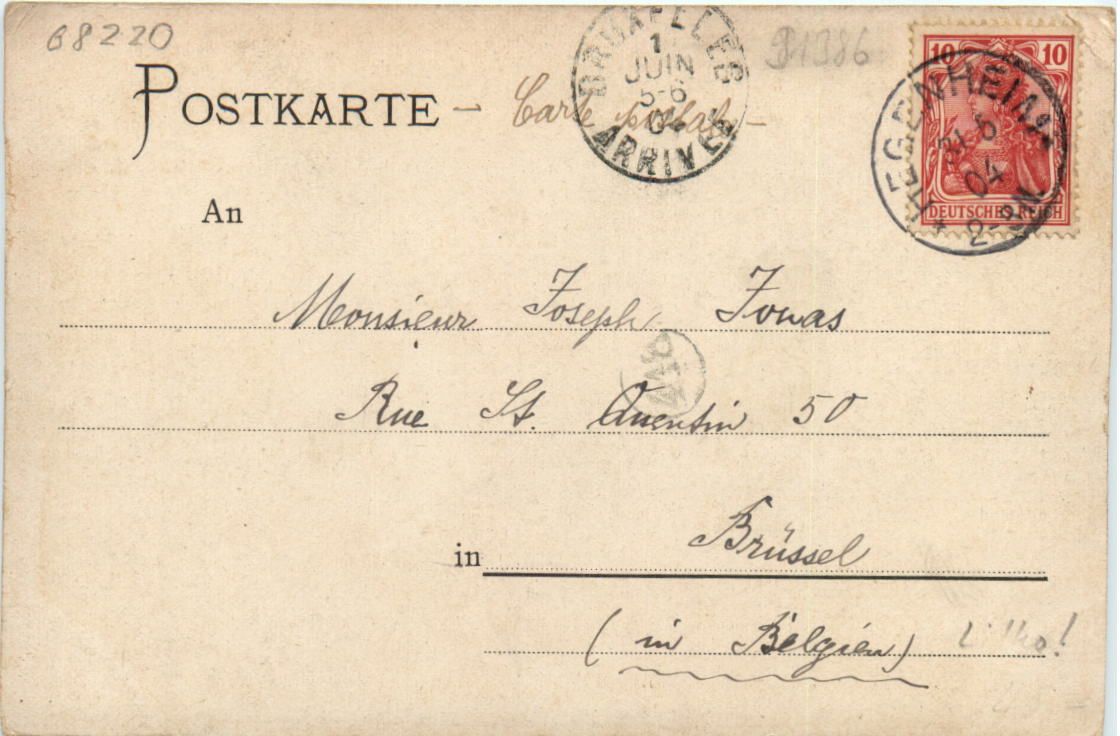 68220
91386
BRUXELLES
1
JUIN
5-6
04
ARRIVEE
10 10
DEUTSCHES REICH
HEGENHEIM
31 5
04
2-3N.
POSTKARTE – Carte postal –
An
Monsieur Joseph Jonas
Rue St. Quentin 50
in Brüssel
(in Belgien) Litho!